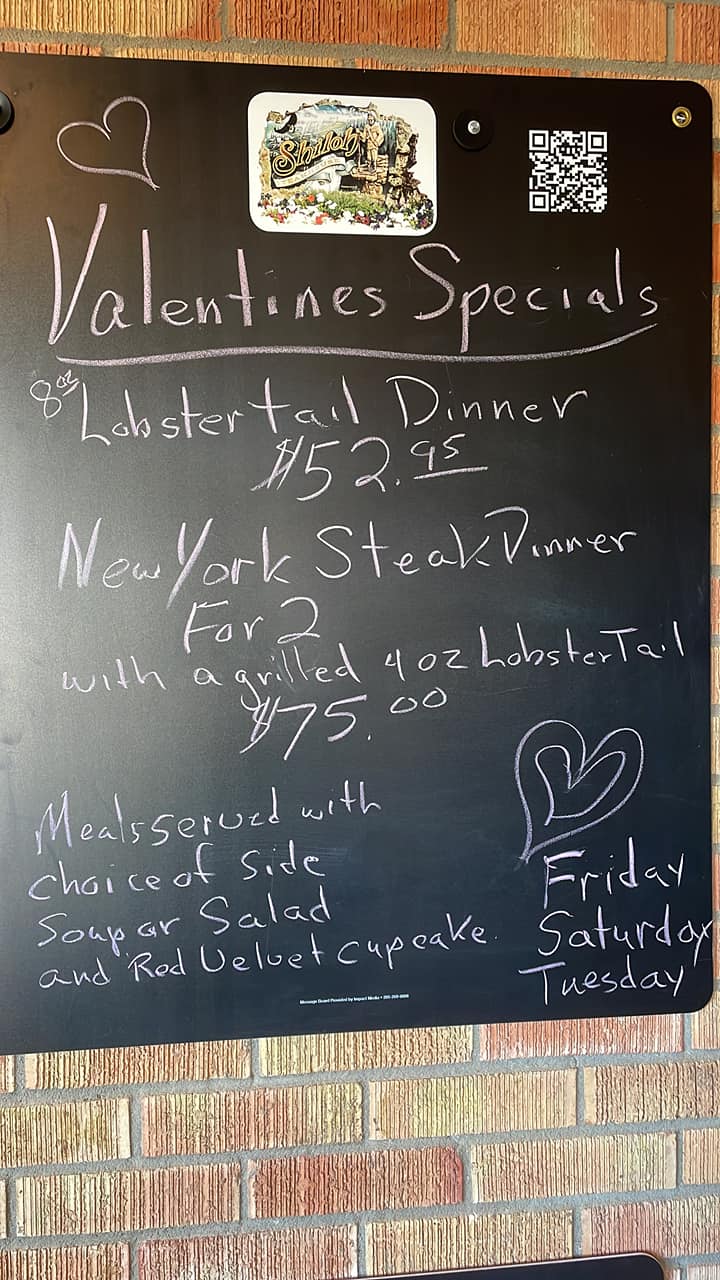 Shiloh
Valentines Specials
8oz Lobster tail Dinner
$52.95
New York Steak Dinner
For 2
with a grilled 4 oz Lobster Tail
$75.00
Meals served with
choice of side
Soup or Salad
and Red Velvet cupcake.
Friday
Saturday
Tuesday